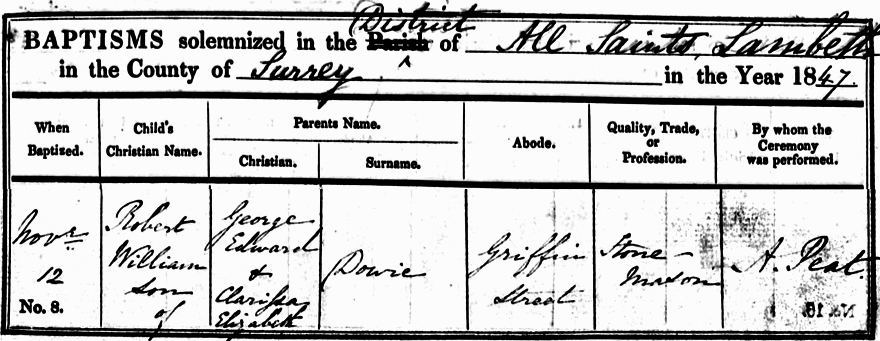 District
BAPTISMS solemnized in the Parish of All Saints, Lambeth
in the County of Surrey in the Year 1847.
When Baptized.
Child's Christian Name.
Parents Name.
Christian.
Surname.
Abode.
Quality, Trade, or Profession.
By whom the Ceremony was performed.
Novr
12
No. 8.
Robert
William
son
of
George
Edward
&
Clarissa
Elizabeth
Dowie
Griffin
Street
Stone-
Mason
A. Peat.